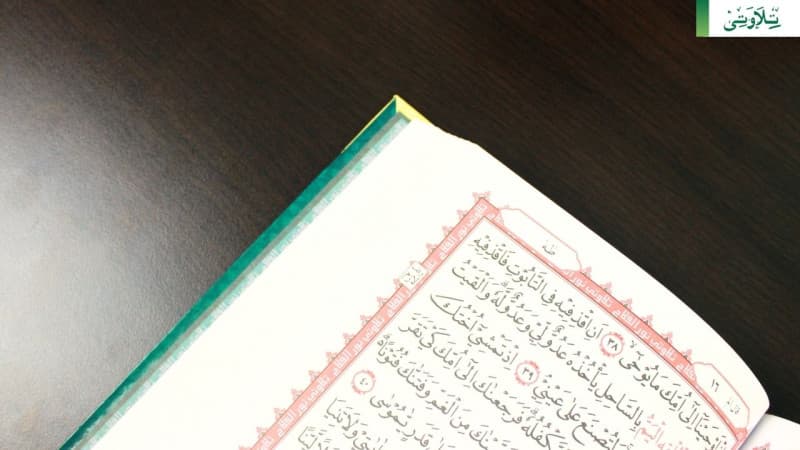 تِلَاوَتِيْ
طٰهٰ
١٦
إِلَىٰٓ أُمِّكَ مَا يُوحَىٰٓ ٣٨ أَنِ اقْذِفِيهِ فِي التَّابُوتِ فَاقْذِفِيهِ
بِالسَّاحِلِ يَأْخُذْهُ عَدُوٌّ لِّي وَعَدُوٌّ لَّهُ وَأَلْقَيْتُ
وَلِتُصْنَعَ عَلَىٰ عَيْنِي ٣٩ إِذْ تَمْشِي أُخْتُكَ
يَكْفُلُهُ فَرَجَعْنَاكَ إِلَىٰٓ أُمِّكَ كَيْ تَقَرَّ
مِنَ الْغَمِّ وَفَتَنَّاكَ فُتُونًا
قَدَرٍ يَٰمُوسَىٰ ٤٠
وَلَا تَنِيَا
تلاوتي نور الفلاح